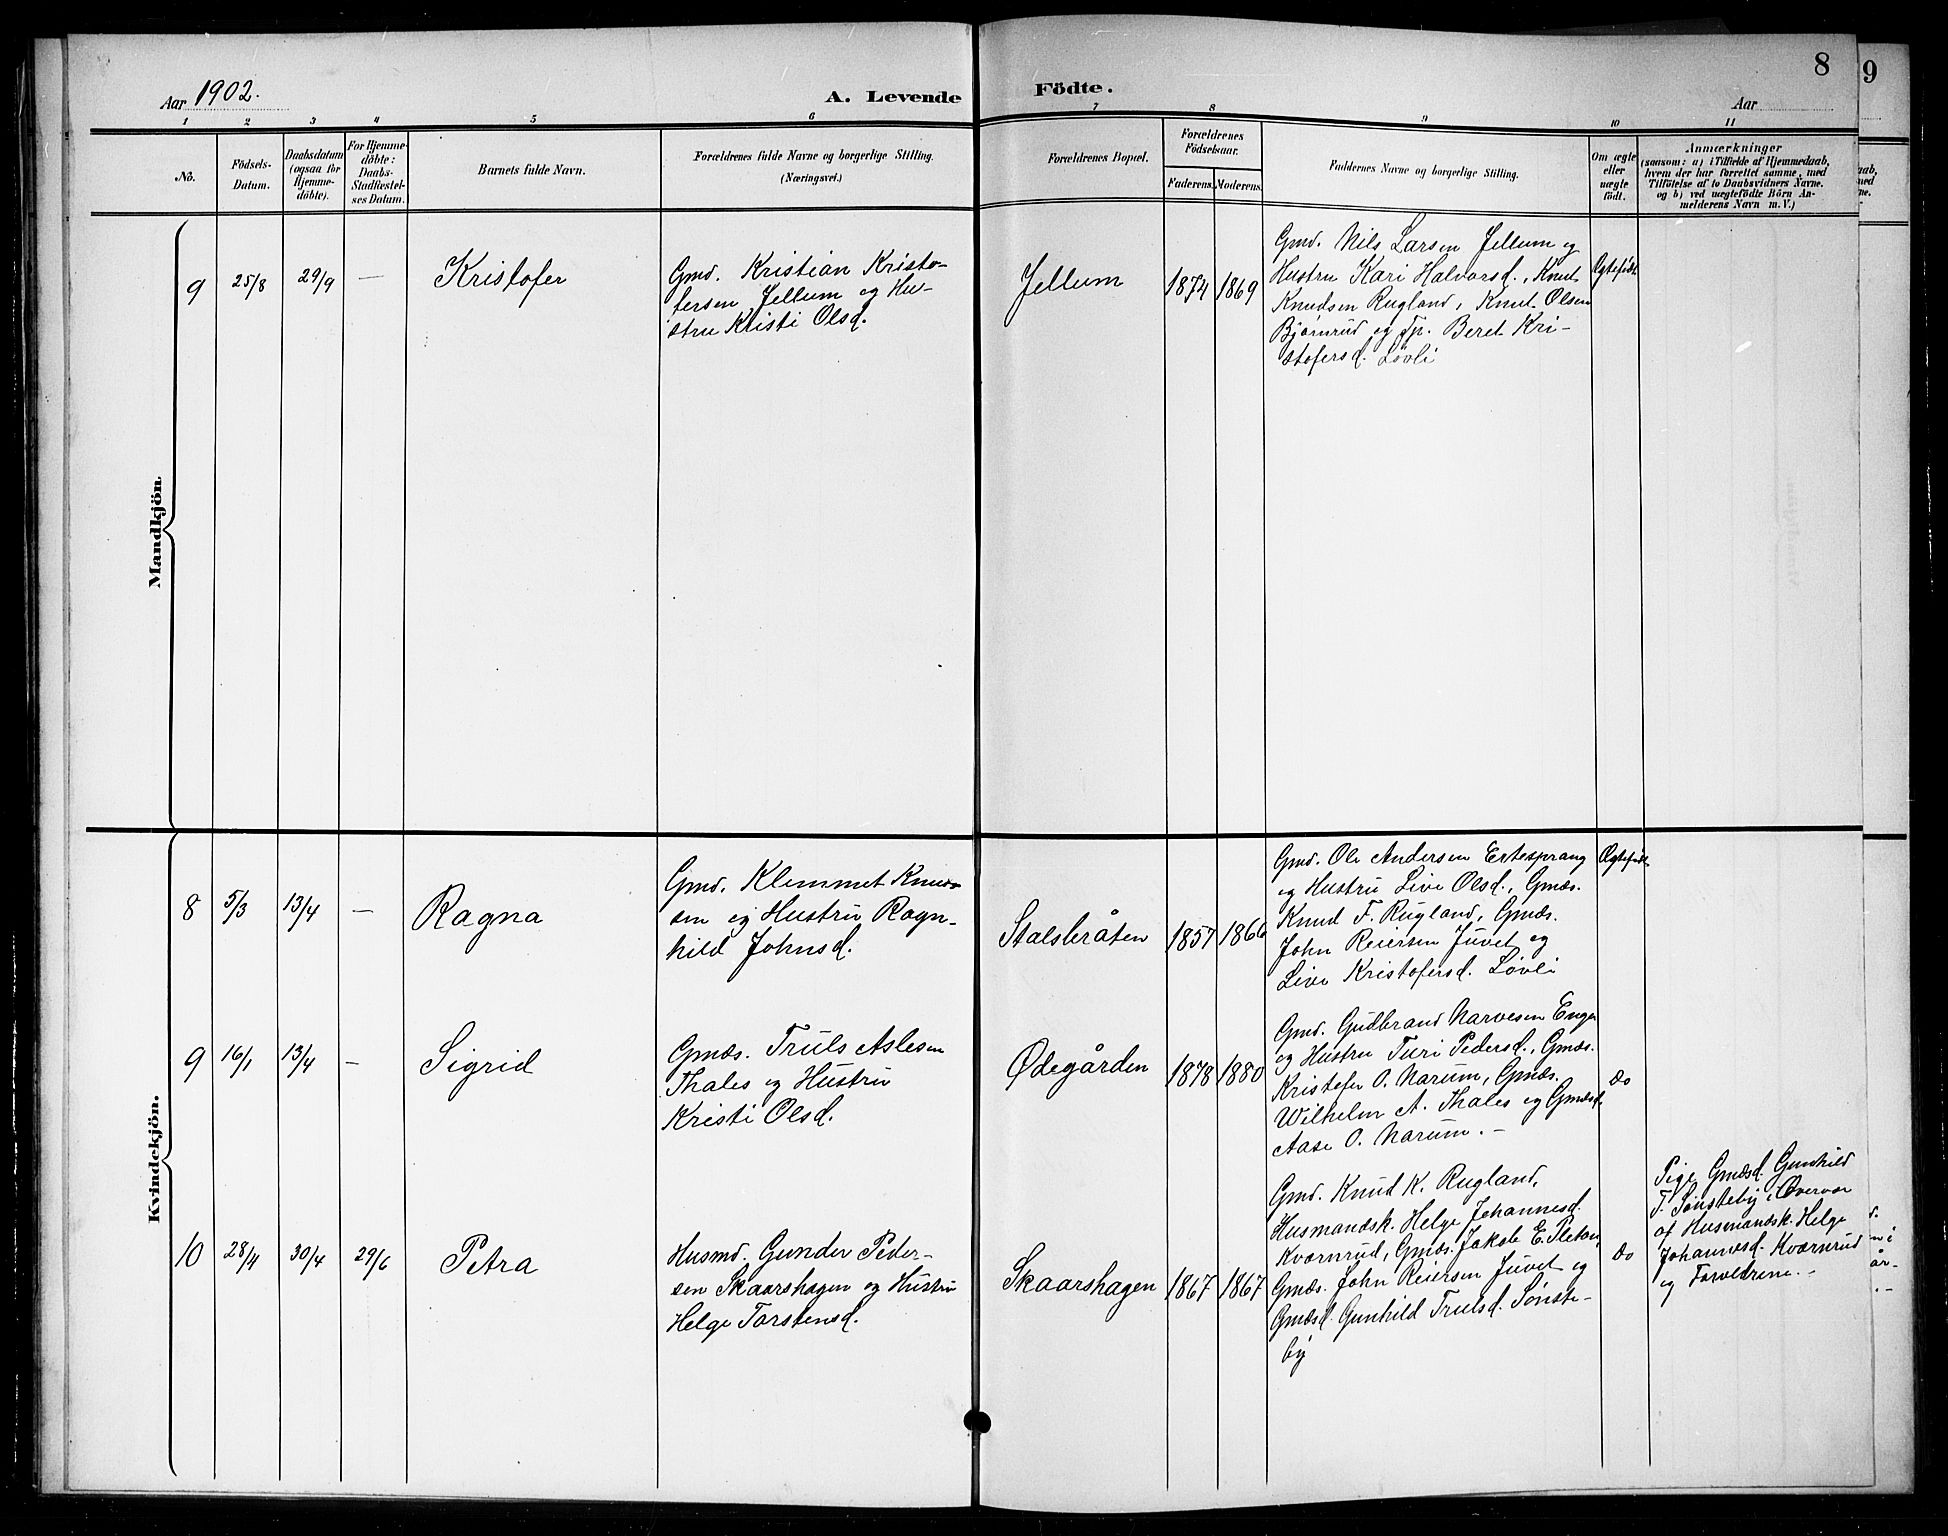 Aar 1902.
A. Levende Födte.
8
9
Aar
1 2 3 4 5 6 7 8 9 10 11
No.
Födsels-
Datum.
Daabsdatum
(ogsaa for
Hjemme-
döbte).
For Hjemme-
döbte:
Daabs-
Stadfæstel-
ses Datum.
Barnets fulde Navn.
Forældrenes fulde Navne og borgerlige Stilling.
(Næringsvei.)
Forældrenes Bopæl.
Forældrenes
Födselsaar.
Faderens. Moderens.
Faddernes Navne og borgerlige Stilling.
Om ægte
eller
uægte
födt.
Anmærkninger
(saasom: a) i Tilfælde af Hjemmedaab,
hvem der har forrettet samme, med
Tilföielse af to Daabsvidners Navne.
og b) ved uægtefödte Börn An-
melderens Navn m. V.)
Mandkjön.
9
25/8
29/9
—
Kristofer
Gmd. Kristian Kristo-
fersen Jellum og Hu-
stru Kristi Olsd.
Jellum
1874
1869
Gmd. Nils Larsen Jellum og
Hustru Kari Halvorsd., Knut
Knudsen Rugland, Knut Olsen
Bjørnrud og Tp. Beret Kri-
stofersd. Løvli
Ægtefødt
Kvindekjön.
8
5/3
13/4
—
Ragna
Gmd. Klemmet Knud-
sen og Hustru Ragn-
hild Johnsd.
Stalsbråten
1857
1866
Gmd. Ole Andersen Ertesprang
og Hustru Live Olsd., Gmds.
Knud F. Rugland, Gmds.
John Reiersen Juvet og
Live Kristofersd. Løvli
Ægtefødt
9
16/1
13/4
—
Sigrid
Gmds. Truls Aslesen
Thales og Hustru
Kristi Olsd.
Ødegården
1878
1880
Gmd. Gudbrand Narvesen Enger
og Hustru Turi Pedersd., Gmds.
Kristofer O. Narum, Gmds.
Wilhelm A. Thales og Gmdsd.
Aase O. Narum. –
Do
10
28/4
30/4
29/6
Petra
Husmd. Gunder Peder-
sen Skaarshagen og Hustru
Helge Torstensd.
Skaarshagen
1867
1867
Gmd. Knud K. Rugland,
Husmandsk. Helge Johannesd.
Kværnrud, Gmds. Jakob E. Pleton,
Gmds. John Reiersen Juvet og
Gmdsd. Gunhild Trulsd. Sønste-
by
Do
Pige Gmdsd. Gunhild
T. Sønsteby i Overvær
af Husmandsk. Helge
Johannesd. Kværnrud
og Forældrene. –